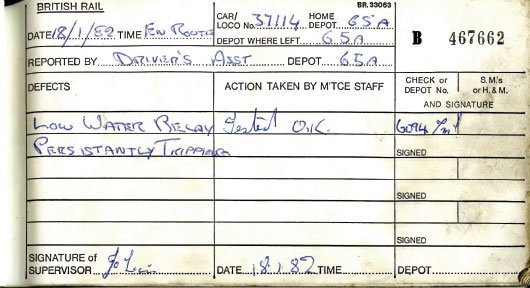 BRITISH RAIL
BR.33063
DATE 18/1/82 TIME EN ROUTE
CAR/ LOCO No. 37114 HOME DEPOT 65A
DEPOT WHERE LEFT 65A
B 467662
REPORTED BY DRIVER'S ASST DEPOT 65A
DEFECTS
ACTION TAKEN BY M'TCE STAFF
CHECK or DEPOT No.
S.M's or H. & M.
AND SIGNATURE
LOW WATER RELAY Tested O.K. 6094
PERSISTANTLY TRIPPING
SIGNED
SIGNED
SIGNED
SIGNATURE of SUPERVISOR
DATE 18.1.82 TIME
DEPOT